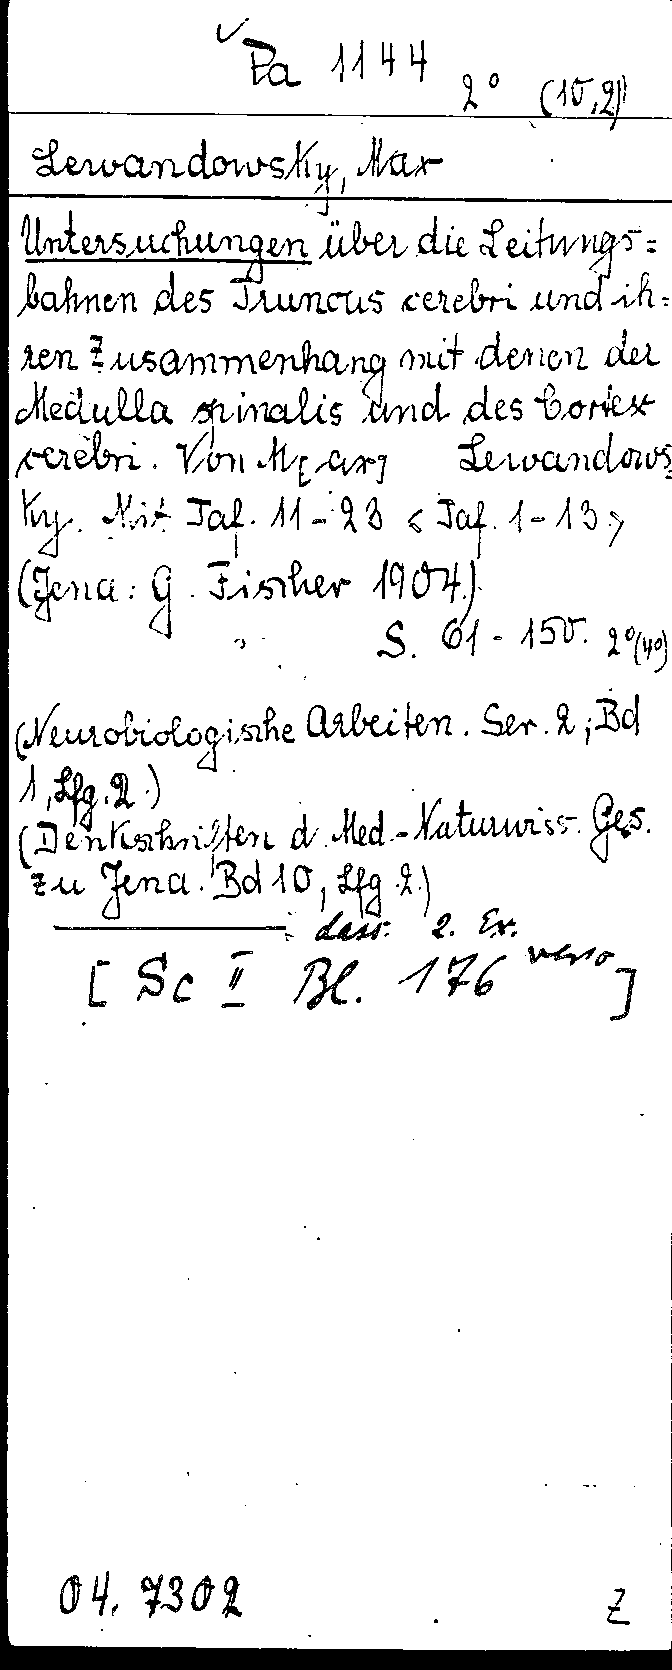 Pa 1144 2° (10,2)
Lewandowsky, Max
Untersuchungen über die Leitungs=
bahnen des Truncus cerebri und ih=
ren Zusammenhang mit denen der
Medulla spinalis und des Cortex
cerebri. Von M[ax] Lewandows
ky. Mit Taf. 11-23 <Taf. 1-13>
(Jena: G. Fischer 1904.)
S. 61-150. 2°(4°)
(Neurobiologische Arbeiten. Ser. 2; Bd
1, Lfg. 2.)
(Denkschriften d. Med.-Naturwiss. Ges.
zu Jena. Bd 10, Lfg. 2.)
: dass. 2. Ex.
[Sc II Bl. 176 verso]
04. 7302 Z